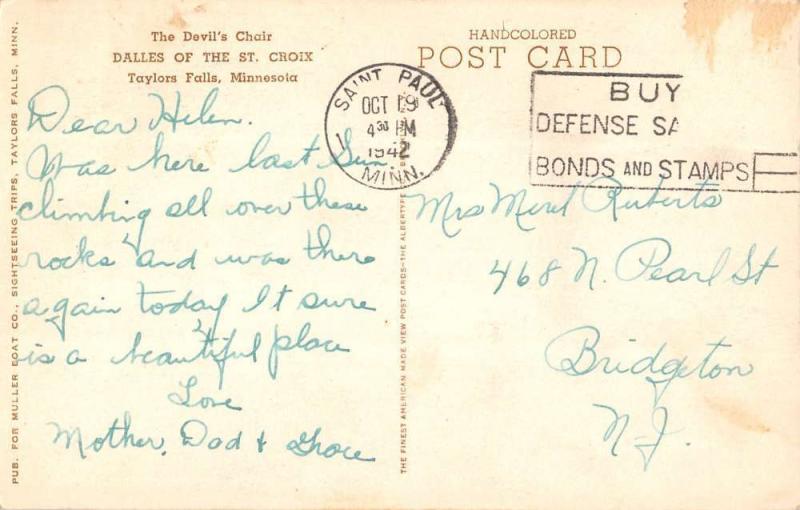 The Devil's Chair
DALLES OF THE ST. CROIX
Taylors Falls, Minnesota
HANDCOLORED
POST CARD
SAINT PAUL
1
OCT 19
430 PM
1942
MINN.
BUY
DEFENSE SA
BONDS AND STAMPS
Dear Helen.
Was here last Sun.
climbing all over these
rocks and was there
again today It sure
is a beautiful place
Love
Mother, Dad & Grace
Mrs Merel Ruberts
468 N. Pearl St
Bridgeton
N-J.
PUB. FOR MULLER BOAT CO., SIGHTSEEING TRIPS, TAYLORS FALLS, MINN.
THE FINEST AMERICAN MADE VIEW POST CARDS—THE ALBERTYPE